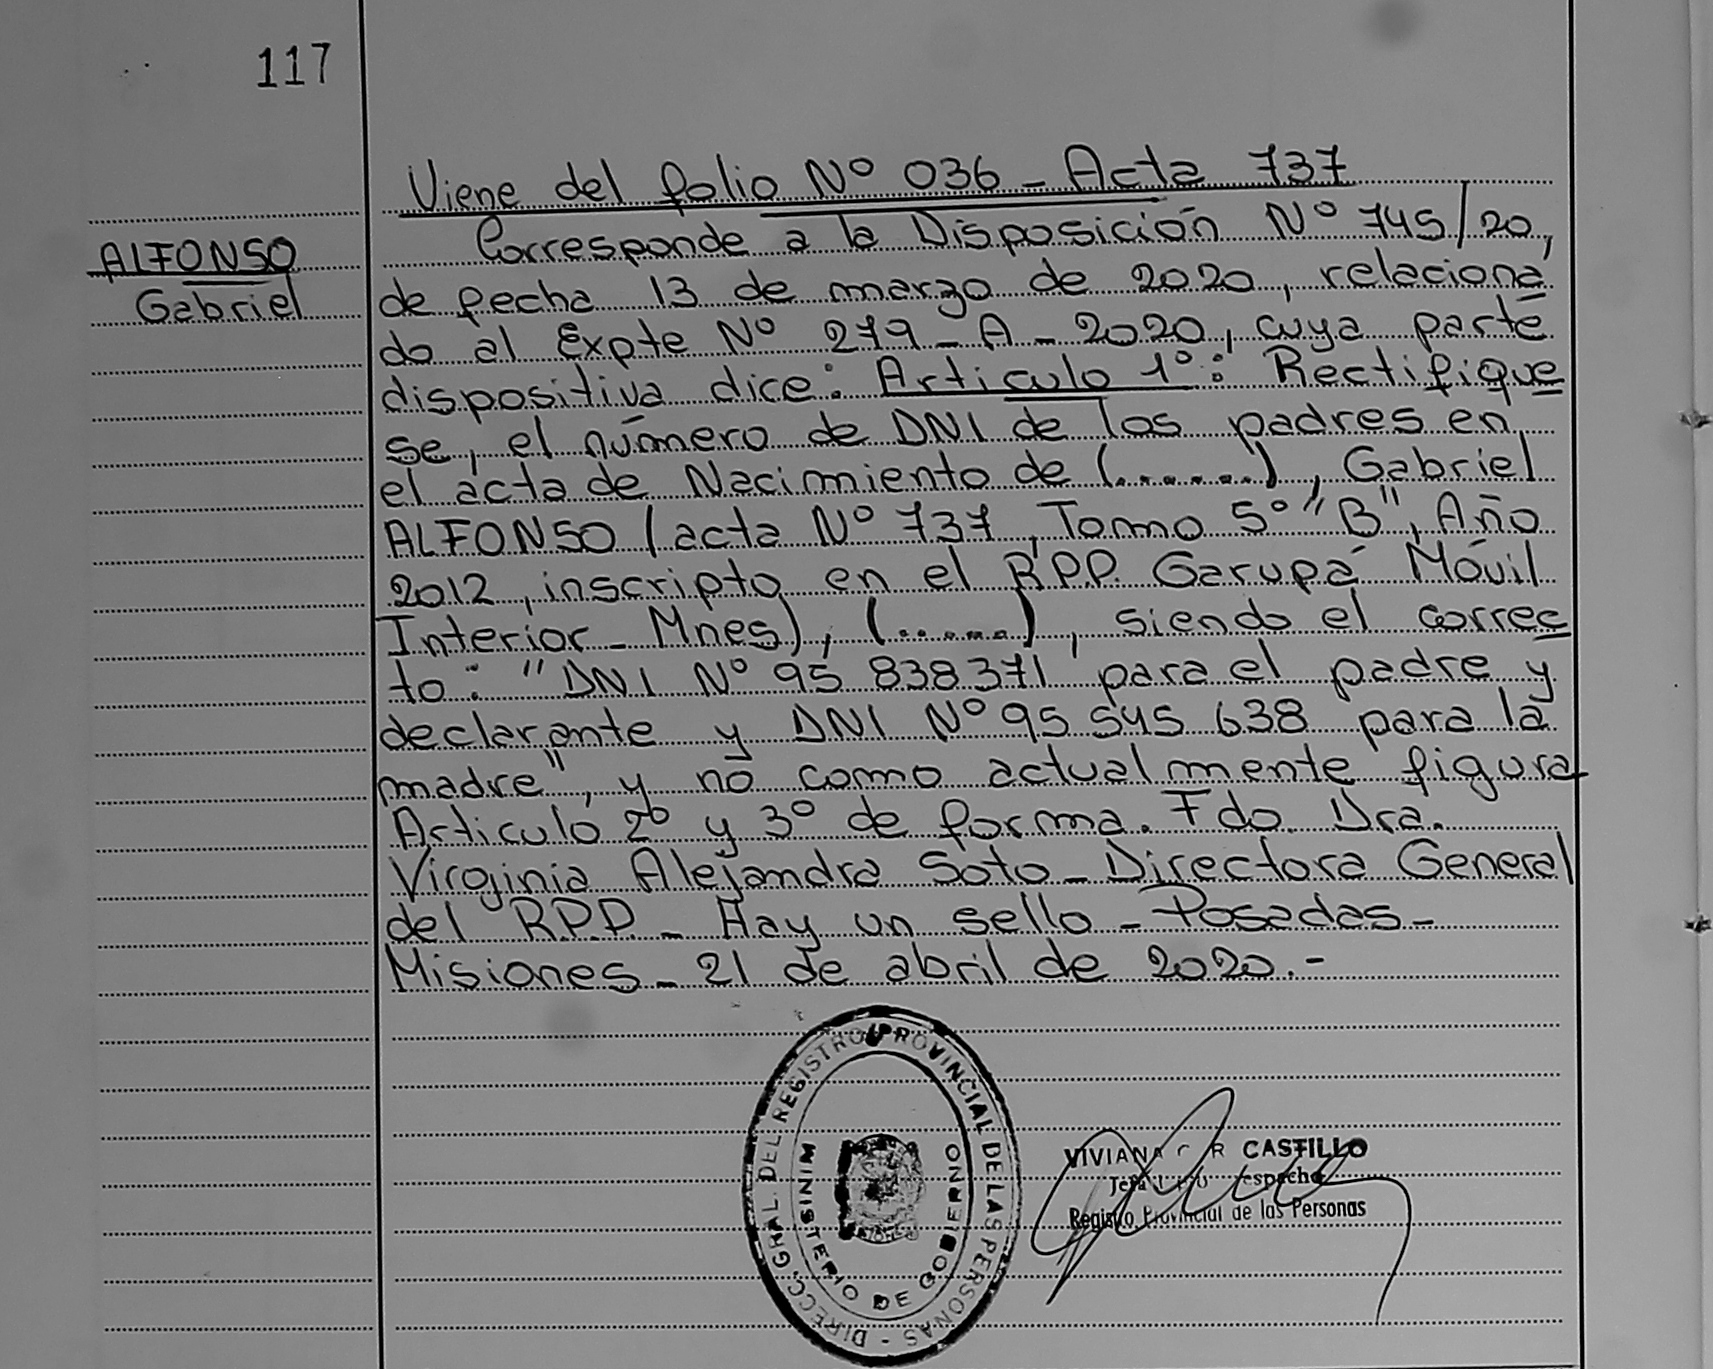 117
Viene del folio Nº 036 - Acta 737
ALFONSO
Gabriel
Corresponde a la Disposición Nº 745/20,
de fecha 13 de marzo de 2020, relaciona
do al Expte Nº 279 - A - 2020, cuya parte
dispositiva dice: Articulo 1º: Rectifique
se, el número de DNI de los padres en
el acta de Nacimiento de (........), Gabriel
ALFONSO (acta Nº 737, Tomo 5º "B", Año
2012, inscripto en el R.P.P. Garupá Móvil
Interior - Mnes), (......), siendo el correc
to: "DNI Nº 95 838 371 para el padre y
declarante y DNI Nº 95 545 638 para la
madre", y no como actualmente figura
Articulo 2º y 3º de forma. Fdo. Dra.
Virginia Alejandra Soto - Directora General
del R.P.P. - Hay un sello - Posadas -
Misiones - 21 de abril de 2020.-
DIRECC. GRAL. DEL REGISTRO PROVINCIAL DE LAS PERSONAS -
MINISTERIO DE GOBIERNO
VIVIANA CASTILLO
Registro Provincial de las Personas